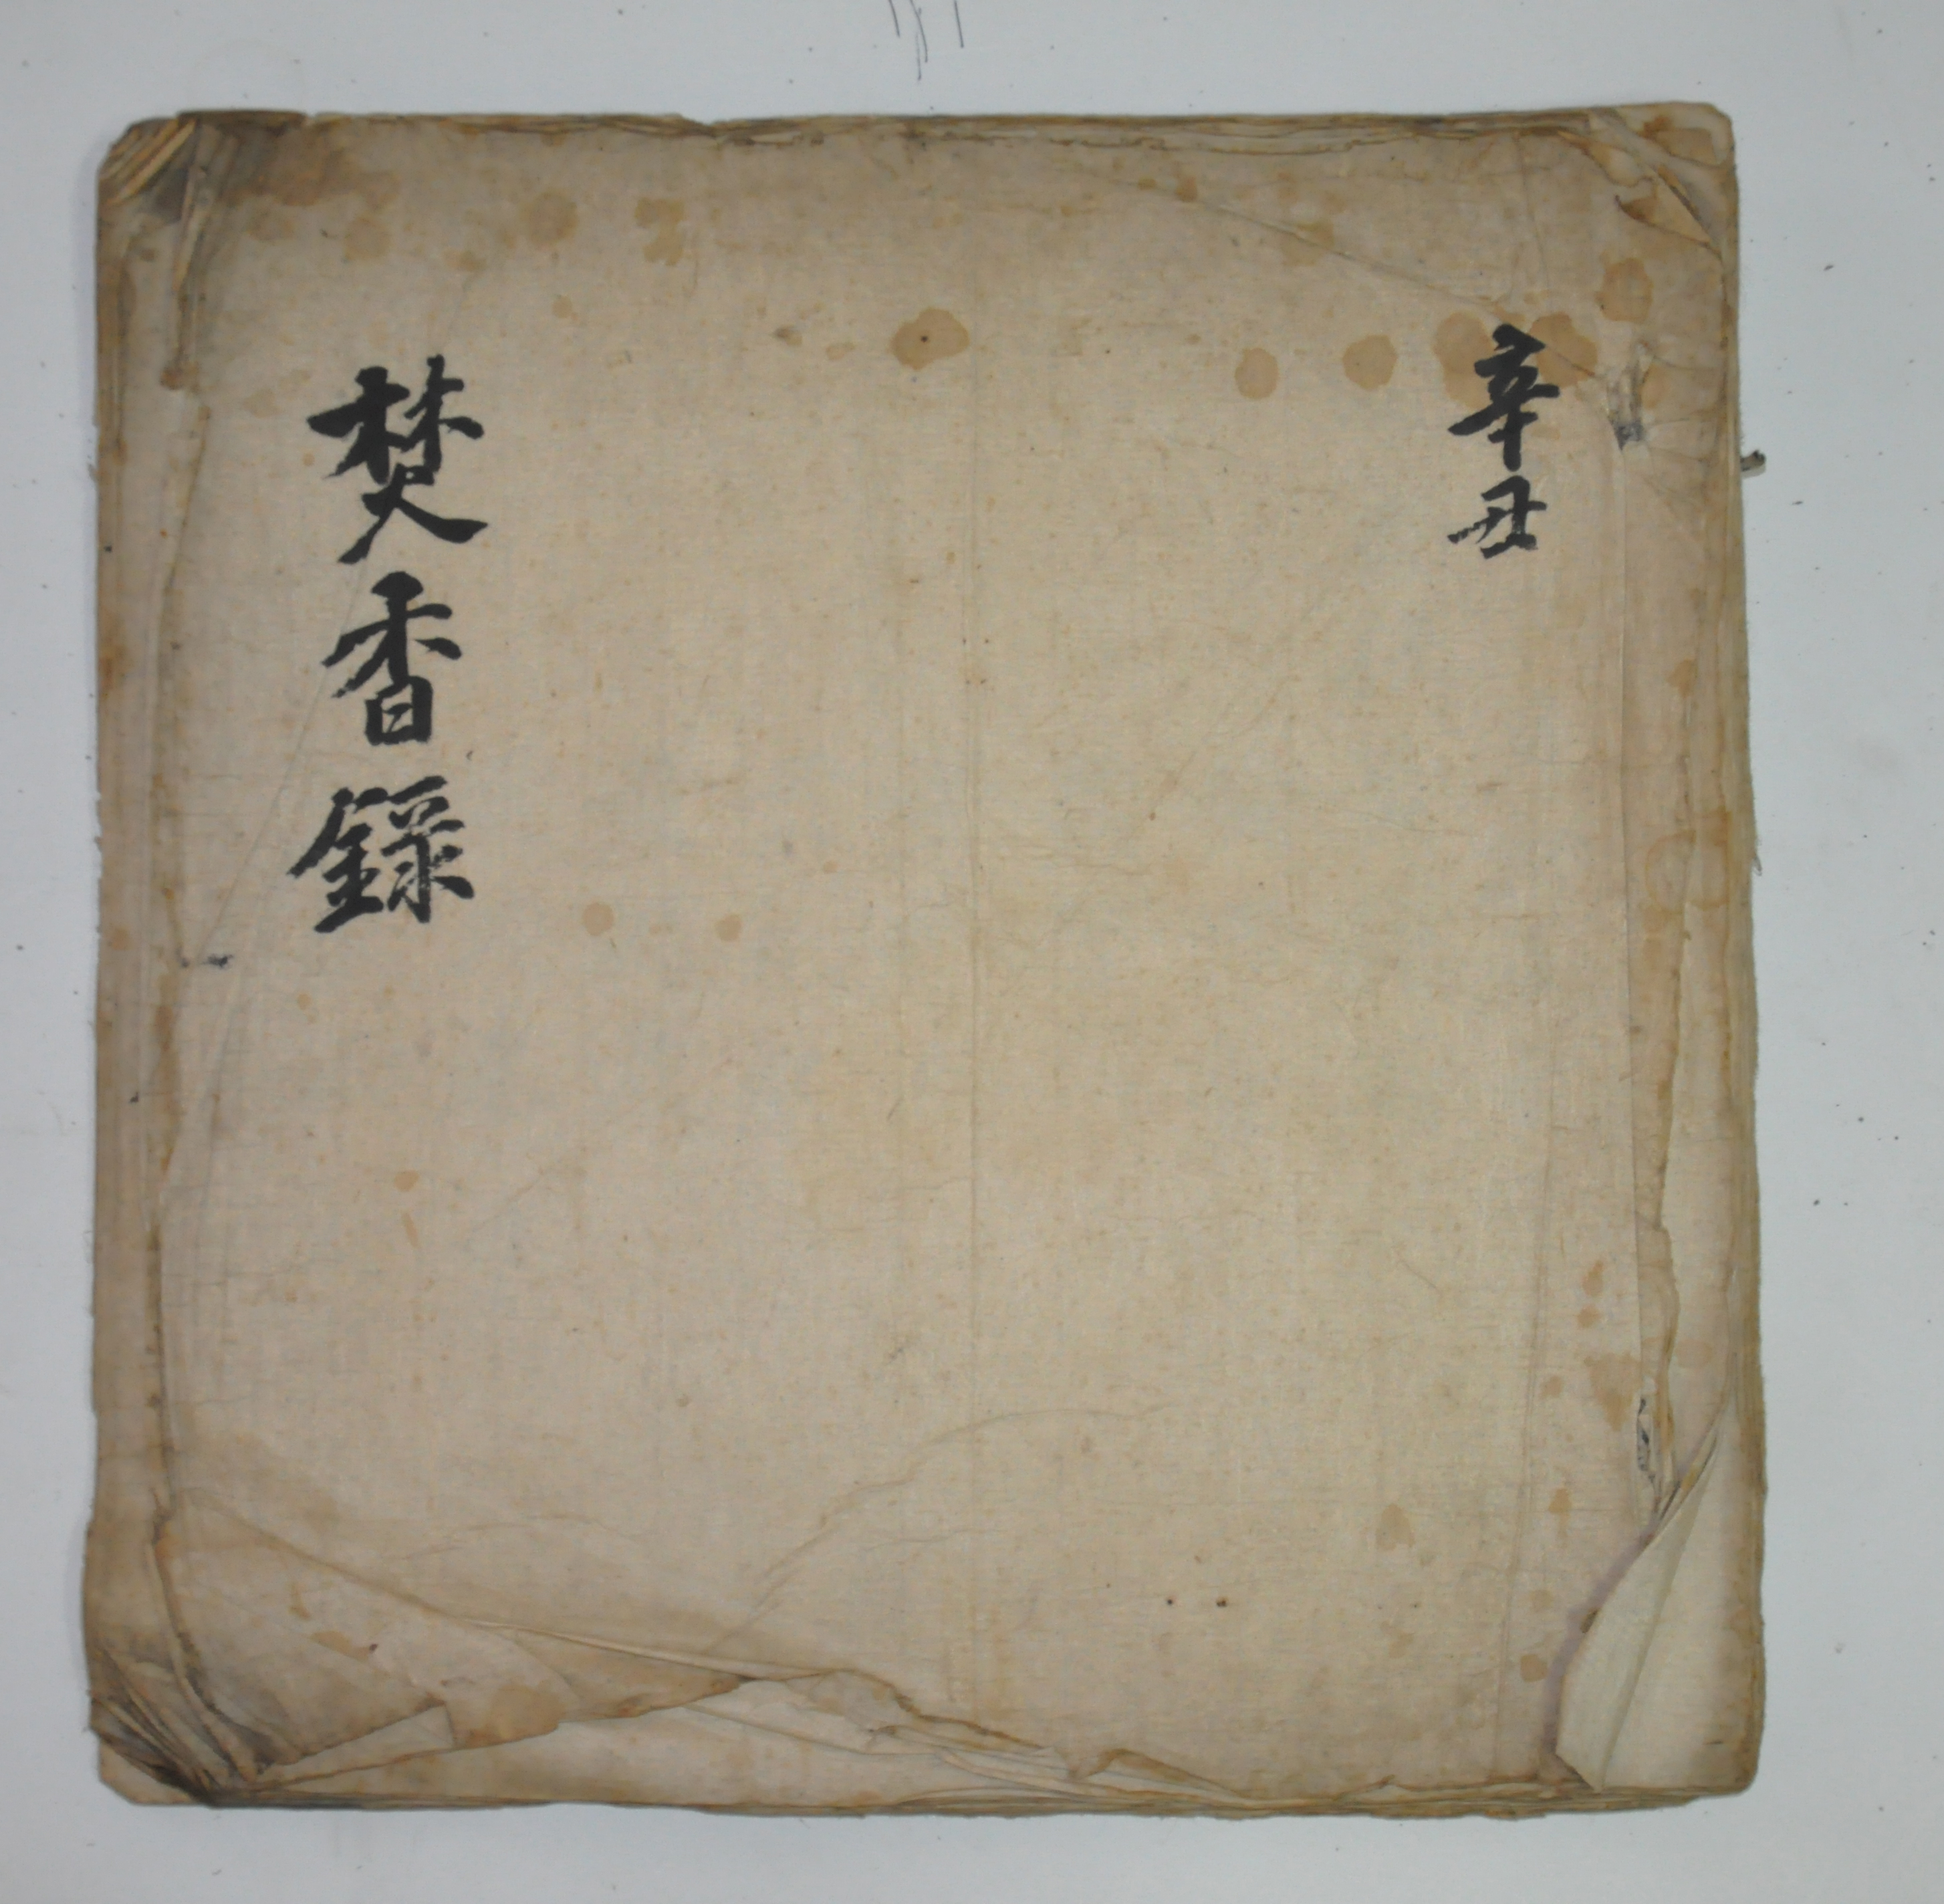 辛丑
焚香錄